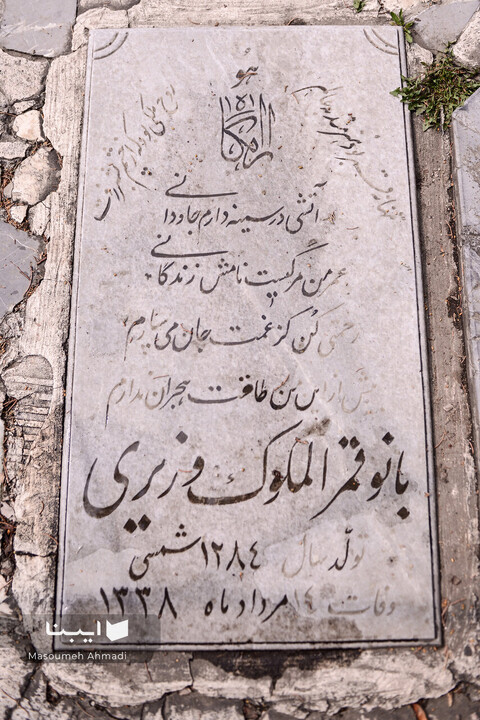 هو
۱۵۱
آرامگاه
آتشی در سینه دارم جاودانی
عمر من مرگیست نامش زندگانی
رحمتی کن کز غمت جان می سپارم
بیش از این من طاقت هجران ندارم
بانو قمر الملوک وزیری
تولد سال ۱۲۸۴ شمسی
وفات ۱۴ مرداد ماه ۱۳۳۸
ایبنا
Masoumeh Ahmadi